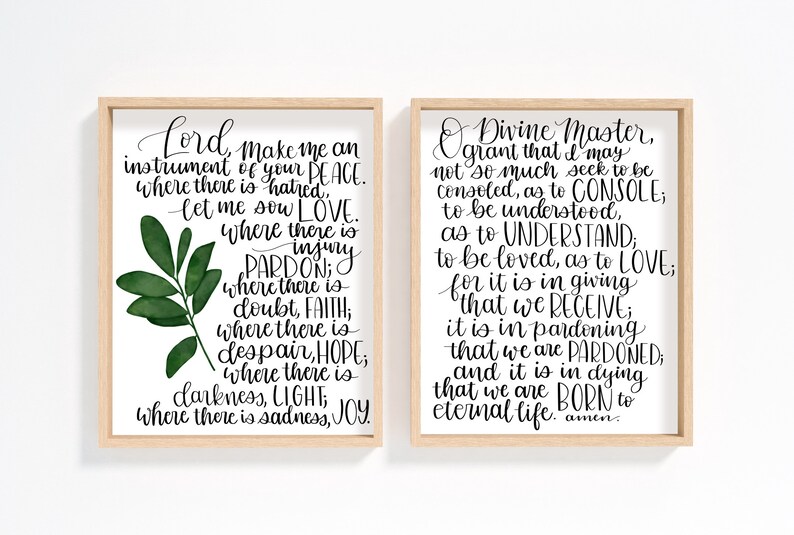 Lord, make me an
instrument of your PEACE.
where there is hatred,
let me sow LOVE.
where there is
injury
PARDON;
where there is
doubt, FAITH;
where there is
despair, HOPE;
where there is
darkness, LIGHT;
where there is sadness, JOY.
O Divine Master,
grant that I may
not so much seek to be
consoled, as to CONSOLE;
to be understood,
as to UNDERSTAND;
to be loved, as to LOVE;
for it is in giving
that we RECEIVE;
it is in pardoning
that we are PARDONED;
and it is in dying
that we are BORN to
eternal life. amen.